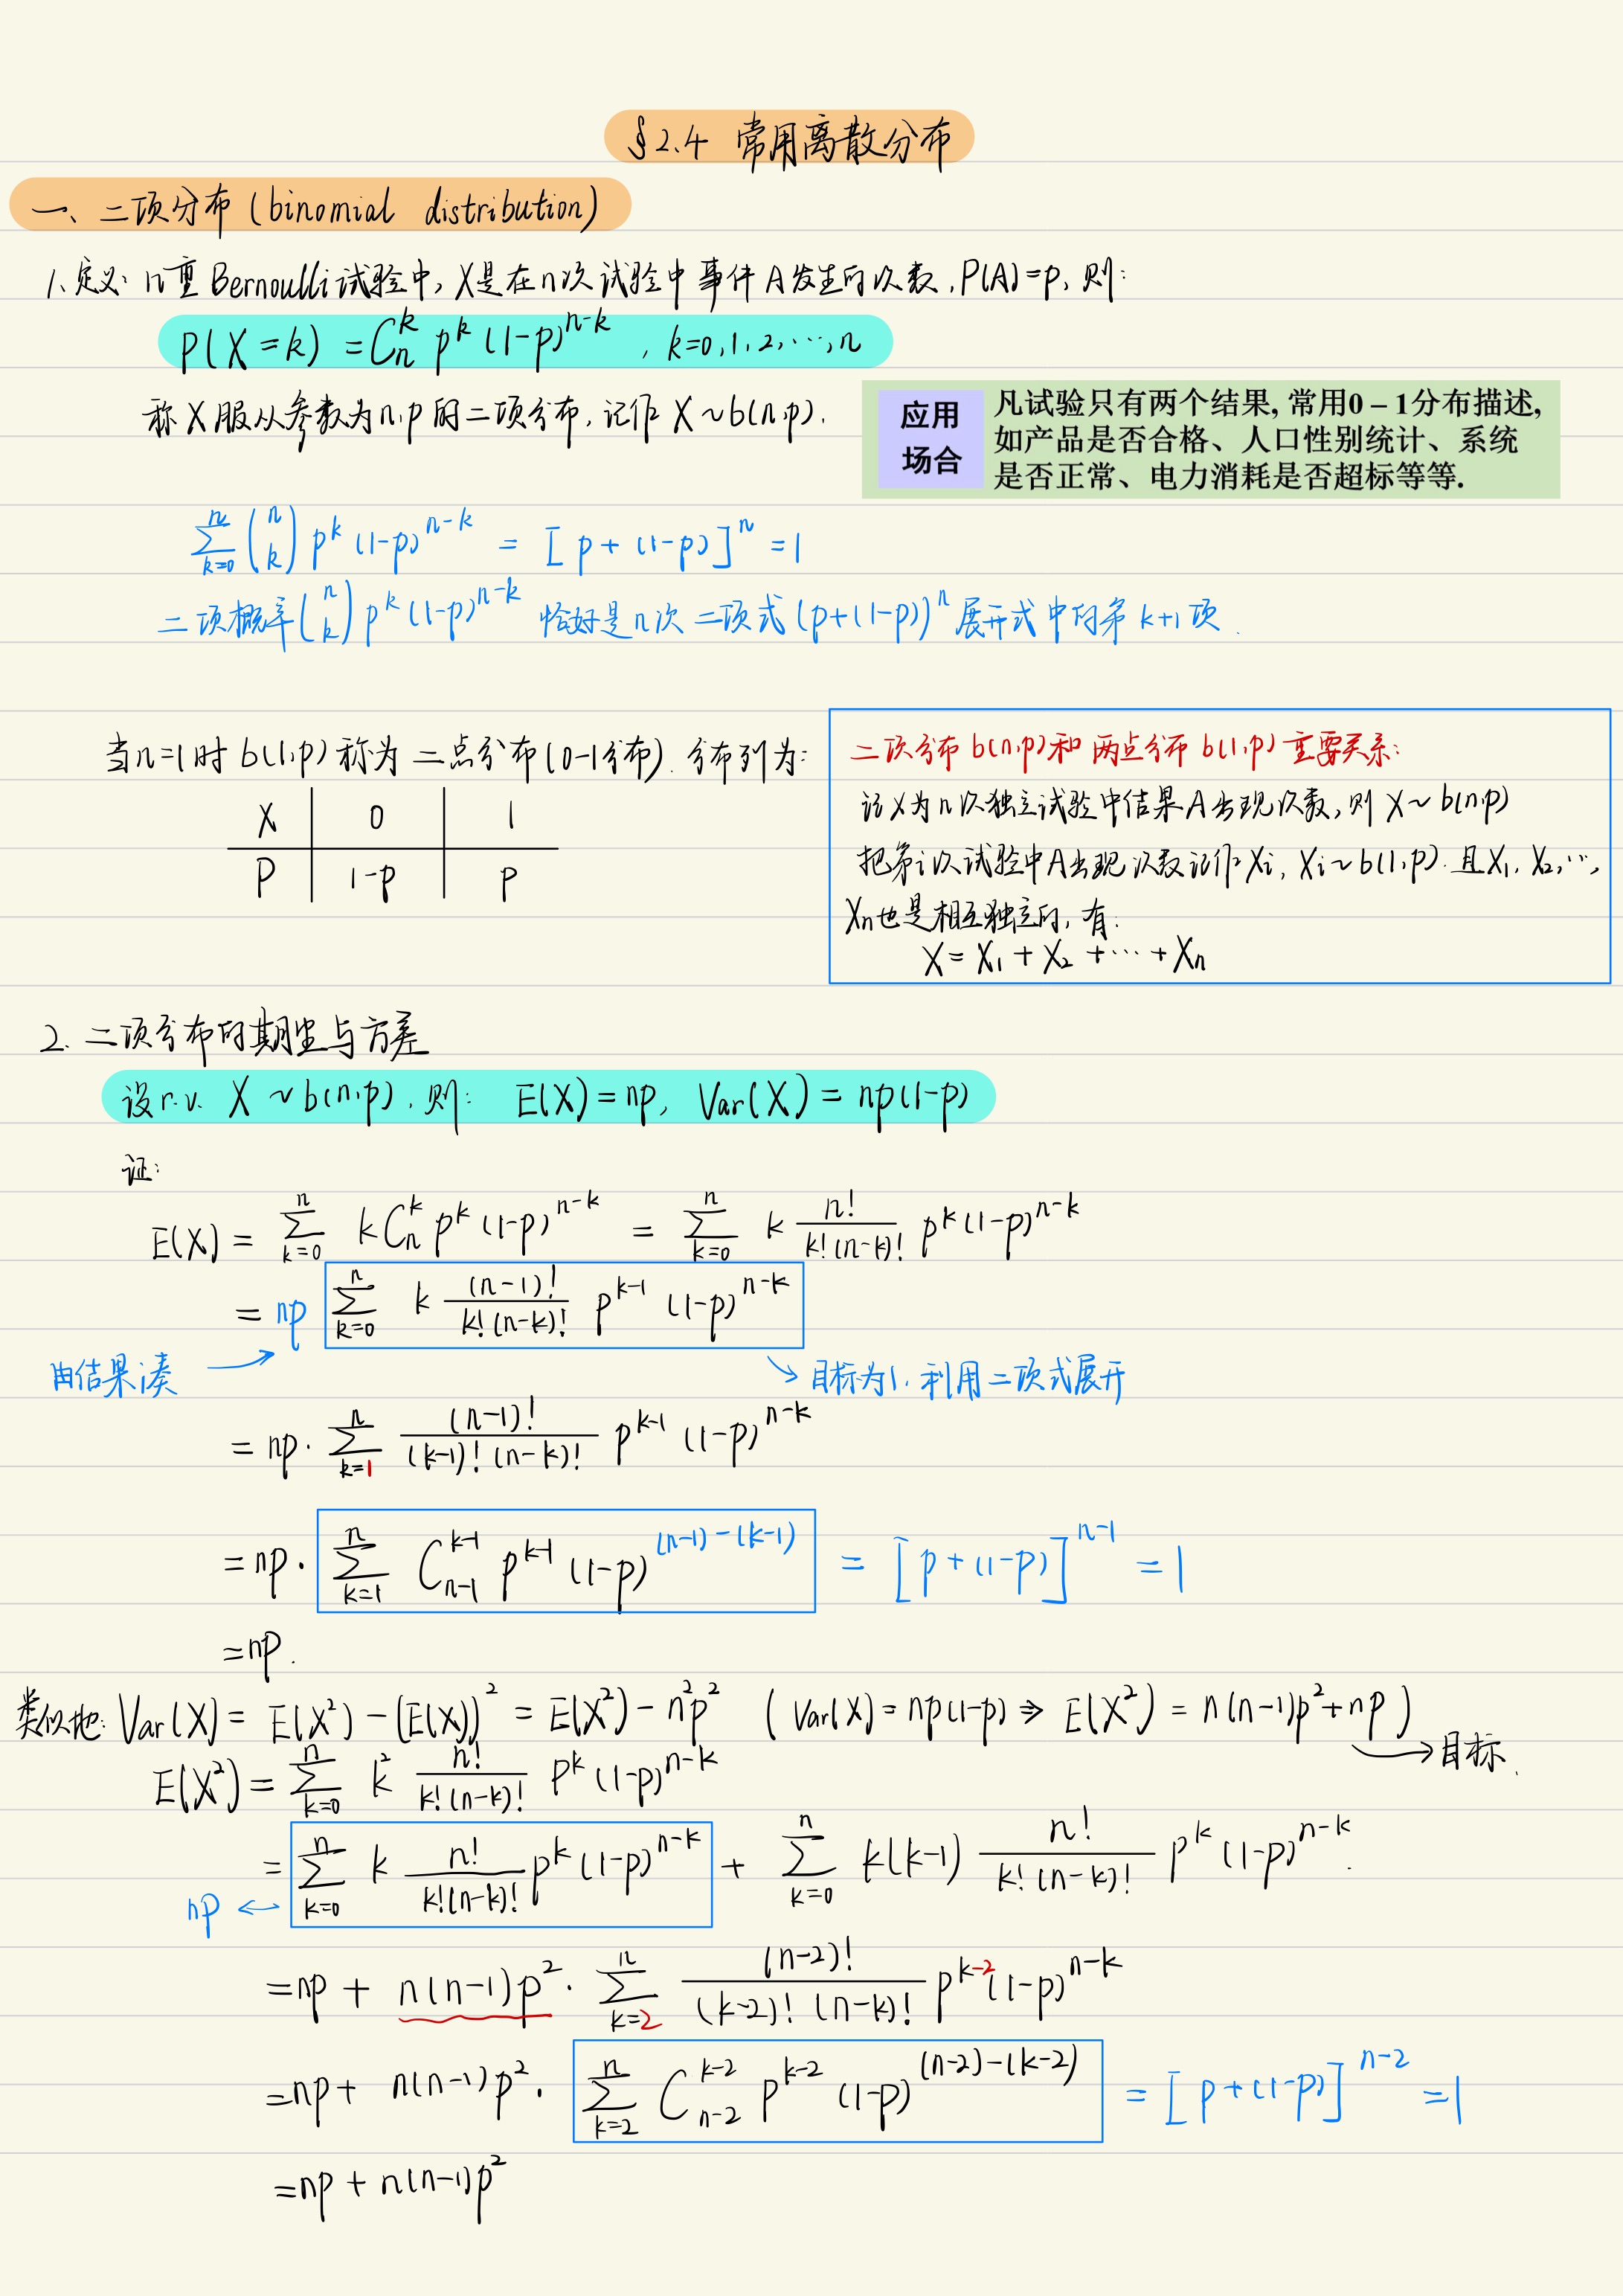 §2.4 常用离散分布
一、二项分布 (binomial distribution)
1. 定义: n重 Bernoulli 试验中, X是在n次试验中事件A发生的次数, P(A)=p, 则:
P(X=k) = C_n^k p^k (1-p)^{n-k} , k=0,1,2,…,n
称X服从参数为n,p的二项分布, 记作 X~b(n,p).
应用场合
凡试验只有两个结果, 常用0－1分布描述,
如产品是否合格、人口性别统计、系统
是否正常、电力消耗是否超标等等.
\sum_{k=0}^{n} \binom{n}{k} p^k (1-p)^{n-k} = [p+(1-p)]^n = 1
二项概率 \binom{n}{k} p^k (1-p)^{n-k} 恰好是n次二项式 (p+(1-p))^n 展开式中的第k+1项.
当n=1时 b(1,p) 称为二点分布(0-1分布). 分布列为:
X | 0 | 1
P | 1-p | p
二项分布b(n,p)和两点分布b(1,p)重要关系:
记X为n次独立试验中结果A出现次数, 则 X~b(n,p)
把第i次试验中A出现次数记作Xi, Xi~b(1,p). 且X_1, X_2, …,
X_n也是相互独立的, 有:
X = X_1 + X_2 + … + X_n
2. 二项分布的期望与方差
设r.v. X~b(n,p), 则: E(X)=np, Var(X)=np(1-p)
证:
E(X) = \sum_{k=0}^{n} k C_n^k p^k (1-p)^{n-k} = \sum_{k=0}^{n} k \frac{n!}{k!(n-k)!} p^k (1-p)^{n-k}
= np \sum_{k=0}^{n} k \frac{(n-1)!}{k!(n-k)!} p^{k-1} (1-p)^{n-k}
由结果凑 → ↘ 目标为1, 利用二项式展开
= np· \sum_{k=1}^{n} \frac{(n-1)!}{(k-1)!(n-k)!} p^{k-1} (1-p)^{n-k}
= np· \sum_{k=1}^{n} C_{n-1}^{k-1} p^{k-1} (1-p)^{(n-1)-(k-1)} = [p+(1-p)]^{n-1} = 1
= np.
类似地: Var(X) = E(X^2) - (E(X))^2 = E(X^2) - n^2p^2 ( Var(X)=np(1-p) ⇒ E(X^2) = n(n-1)p^2+np )
→ 目标.
E(X^2) = \sum_{k=0}^{n} k^2 \frac{n!}{k!(n-k)!} p^k (1-p)^{n-k}
= \sum_{k=0}^{n} k \frac{n!}{k!(n-k)!} p^k (1-p)^{n-k} + \sum_{k=0}^{n} k(k-1) \frac{n!}{k!(n-k)!} p^k (1-p)^{n-k}.
np ←
= np + n(n-1)p^2· \sum_{k=2}^{n} \frac{(n-2)!}{(k-2)!(n-k)!} p^{k-2} (1-p)^{n-k}
= np + n(n-1)p^2· \sum_{k=2}^{n} C_{n-2}^{k-2} p^{k-2} (1-p)^{(n-2)-(k-2)} = [p+(1-p)]^{n-2} = 1
= np + n(n-1)p^2